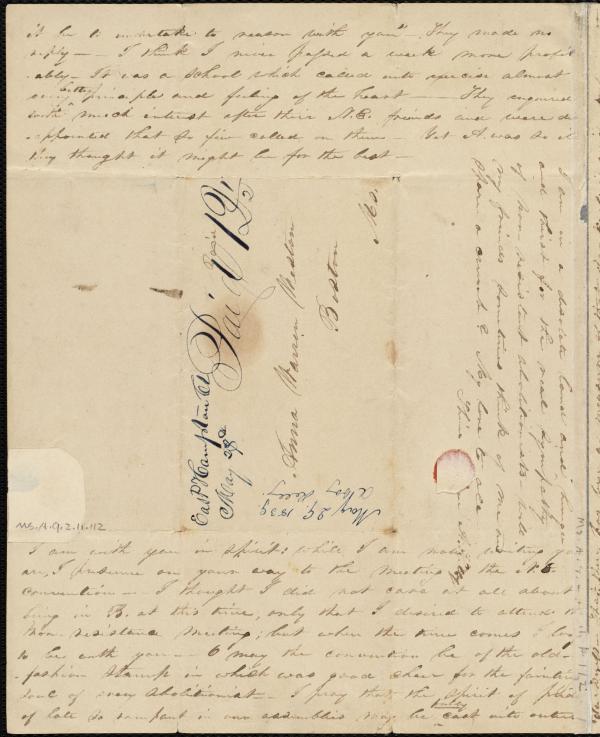 it be to undertake to reason with you" – They made no
reply – – I think I never passed a week more profit
ably – It was a school which called into exercise almost
every principle and feeling of the heart – – They enquired
with much interest after their N.E. friends and were dis
appointed that so few called on them – Yet A. was so ill
they thought it might be for the best –
I am in a desolate land and hunger
and thirst for the real sympathy
of non resistant abolitionists
my friends sometimes think of me and
spare a crumb & My love to all
Thine
East Hampton Ct
May 28
Paid
12½
Anna Warren Weston
Boston
Ms.
May 29. 1839
Ms.A.9.2.11.112
I am with you in spirit: while I am now writing you
are, I presume on your way to the meeting of the N.E.
convention – I thought I did not care at all about
being in B. at this time, only that I desired to attend the
Non-resistance meeting; but when the time comes I long
to be with you – – O may the convention be of the old-
fashion stamp in which was good cheer for the fainting
soul of every Abolitionist – I pray that the spirit of
of late so rampant in our assemblies may be cast into outer